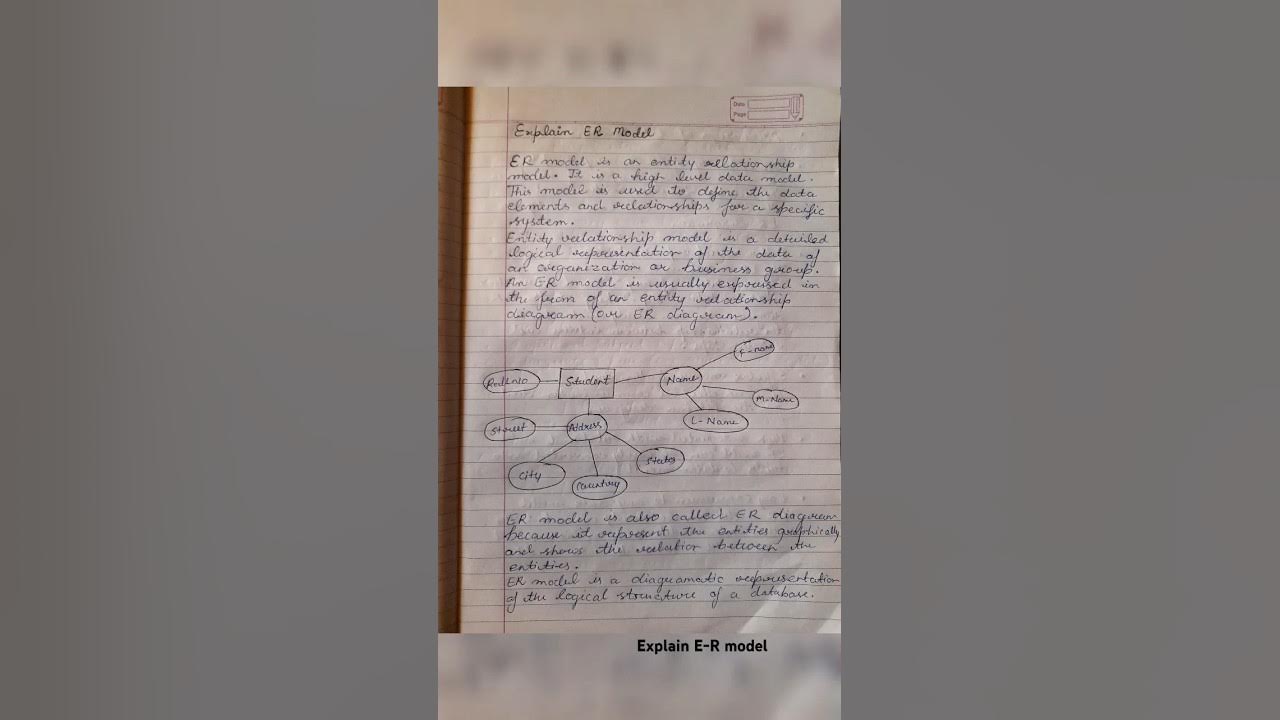 Date
Page
Explain ER Model
ER model is an entity relationship
model. It is a high level data model.
This model is used to define the data
elements and relationships for a specific
system.
Entity relationship model is a detailed
logical representation of the data of
an organization or business group.
An ER model is usually expressed in
the from of an entity relationship
diagram (or ER diagram).
F-name
Roll no Student Name
M-Name
L-Name
Street Address
States
City
Country
ER model is also called ER diagram
because it represent the entities graphically
and shows the relation between the
entities.
ER model is a diagramatic representation
of the logical structure of a database.
Explain E-R model